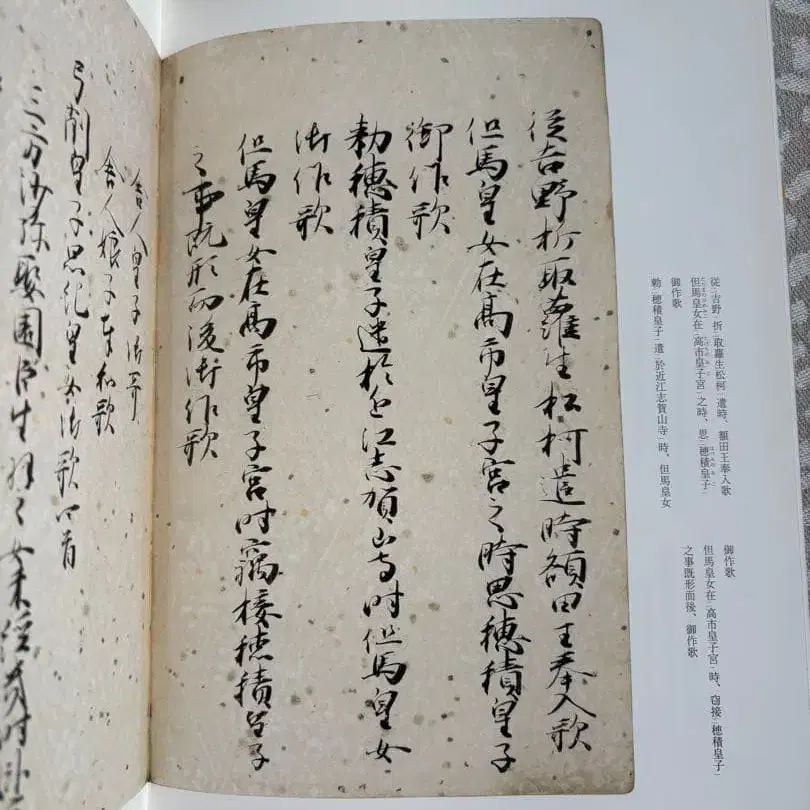 従吉野折取蘿生松柯遣時、額田王奉入歌
但馬皇女在高市皇子宮之時、思穂積皇子
御作歌
勅穂積皇子遣於近江志賀山寺時、但馬皇女
御作歌
但馬皇女在高市皇子宮時、窃接穂積皇子
之事既形而後、御作歌
従吉野折取蘿生松柯遣時額田王奉入歌
但馬皇女在高市皇子宮之時思穂積皇子
御作歌
勅穂積皇子遣於近江志賀山寺時但馬皇女
御作歌
但馬皇女在高市皇子宮時竊接穂積皇子
之事既形而後御作歌
舎人皇子御歌
舎人娘子奉和歌
弓削皇子思紀皇女御歌四首
三方沙弥娶園臣生羽之女未経幾時臥